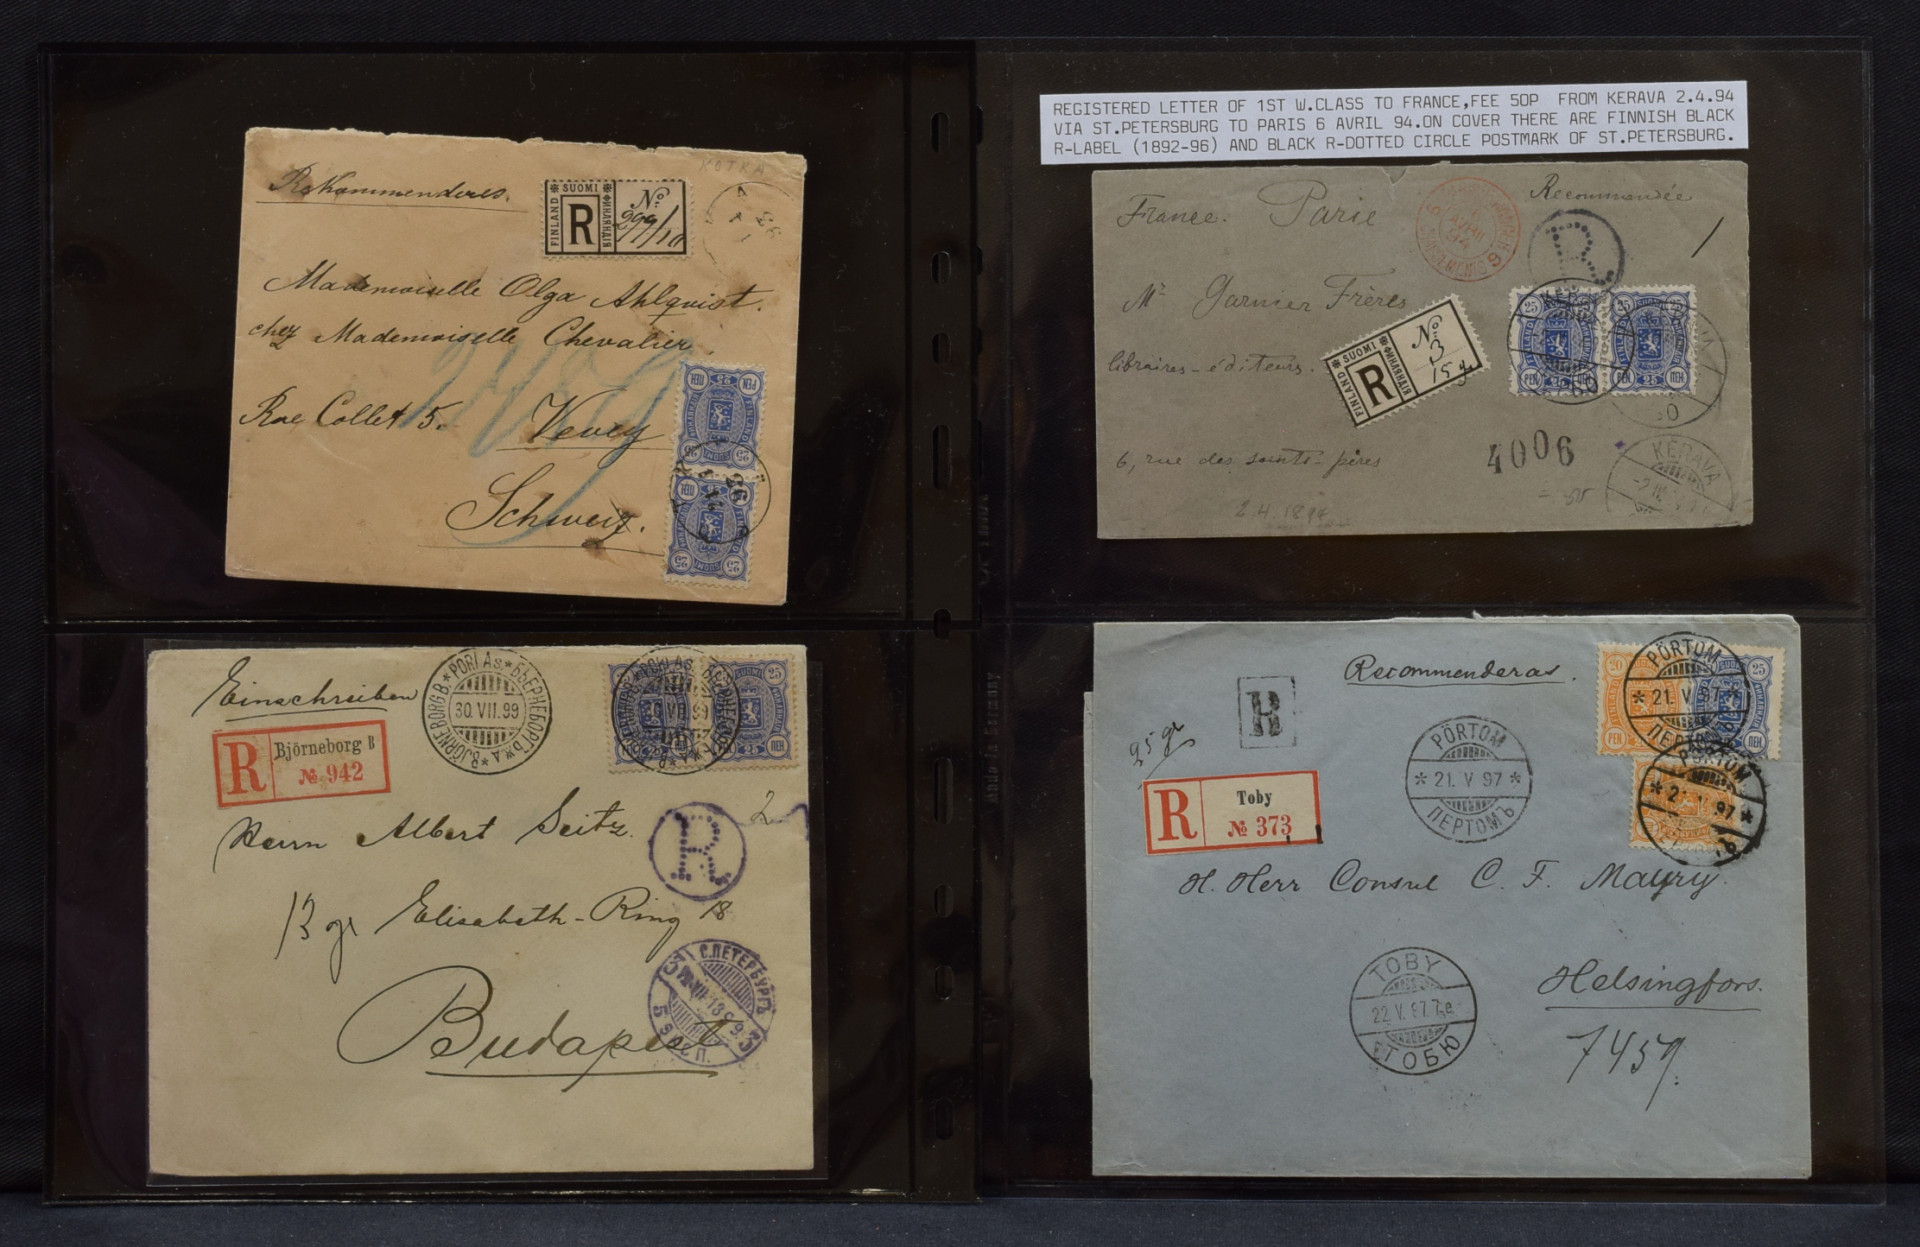 KOTKA
Rekommenderes.
FINLAND
SUOMI
ФИНЛЯНДІЯ
R
No
299/10
Mademoiselle Olga Ahlquist.
chez Mademoiselle Chevalier
Rue Collet 5.
Vevey
Schweiz.
2489
25
25
PEN
ПЕН
REGISTERED LETTER OF 1ST W.CLASS TO FRANCE,FEE 50P FROM KERAVA 2.4.94
VIA ST.PETERSBURG TO PARIS 6 AVRIL 94.ON COVER THERE ARE FINNISH BLACK
R-LABEL (1892-96) AND BLACK R-DOTTED CIRCLE POSTMARK OF ST.PETERSBURG.
France. Paris
Recommendée
R
Mr Garnier Frères
libraires-éditeurs.
6, rue des saints-pères
FINLAND
SUOMI
ФИНЛЯНДІЯ
R
No
3
15 g
25 25
PEN 25 ПЕН
4006
KERAVA
2.4.1894
Einschreiben
BJÖRNEBORG B. * PORI As. * БЬЕРНЕБОРГЪ
30.VII.99
R
Björneborg B
№ 942
25
Herrn Albert Seitz.
2
R
13 gr Elisabeth-Ring 18
Budapest
С.ПЕТЕРБУРГЪ
Recommenderas.
25 gr
R
R
Toby
№ 373
PÖRTOM
* 21. V 97 *
ПЕРТОМЪ
20
PEN
25
ПЕН
PÖRTOM
* 21. V. 97 *
ПЕРТОМЪ
PÖRTOM
H. Herr Consul C. F. Mayry.
TOBY
22. V. 97
ТОБЮ
Helsingfors.
7459.